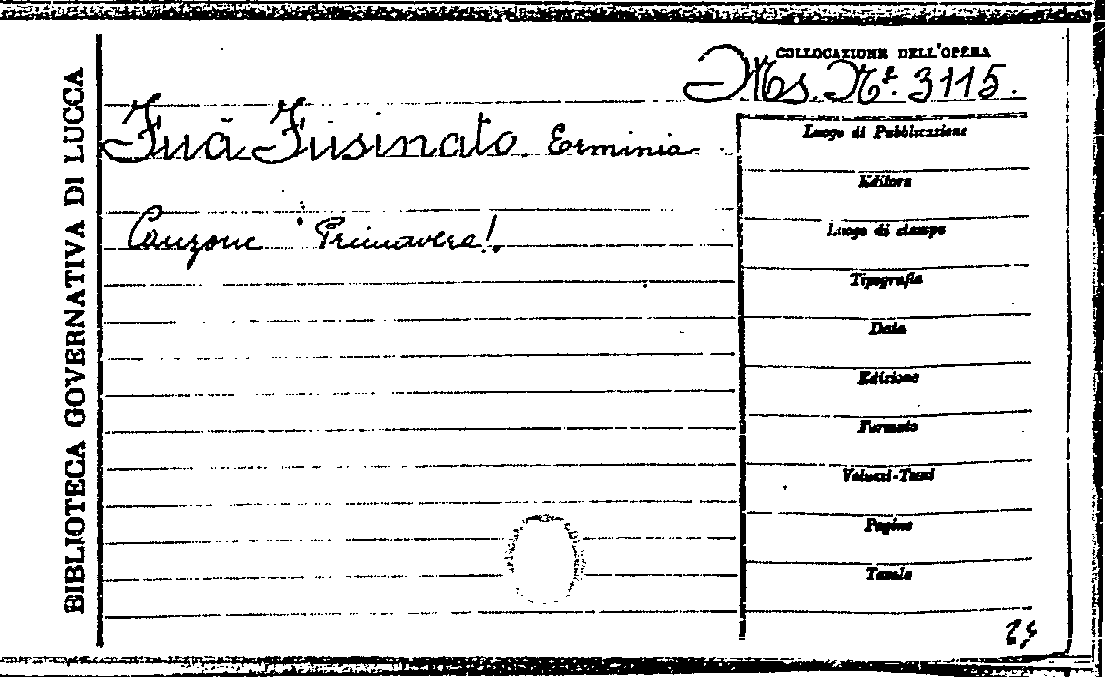 BIBLIOTECA GOVERNATIVA DI LUCCA
COLLOCAZIONE DELL'OPERA
Ms. Nº. 3115.
Fuà Fusinato Erminia
Canzone "Primavera!"
Luogo di Pubblicazione
Editore
Luogo di stampa
Tipografia
Data
Edizione
Formato
Volumi-Tomi
Pagine
Tavole